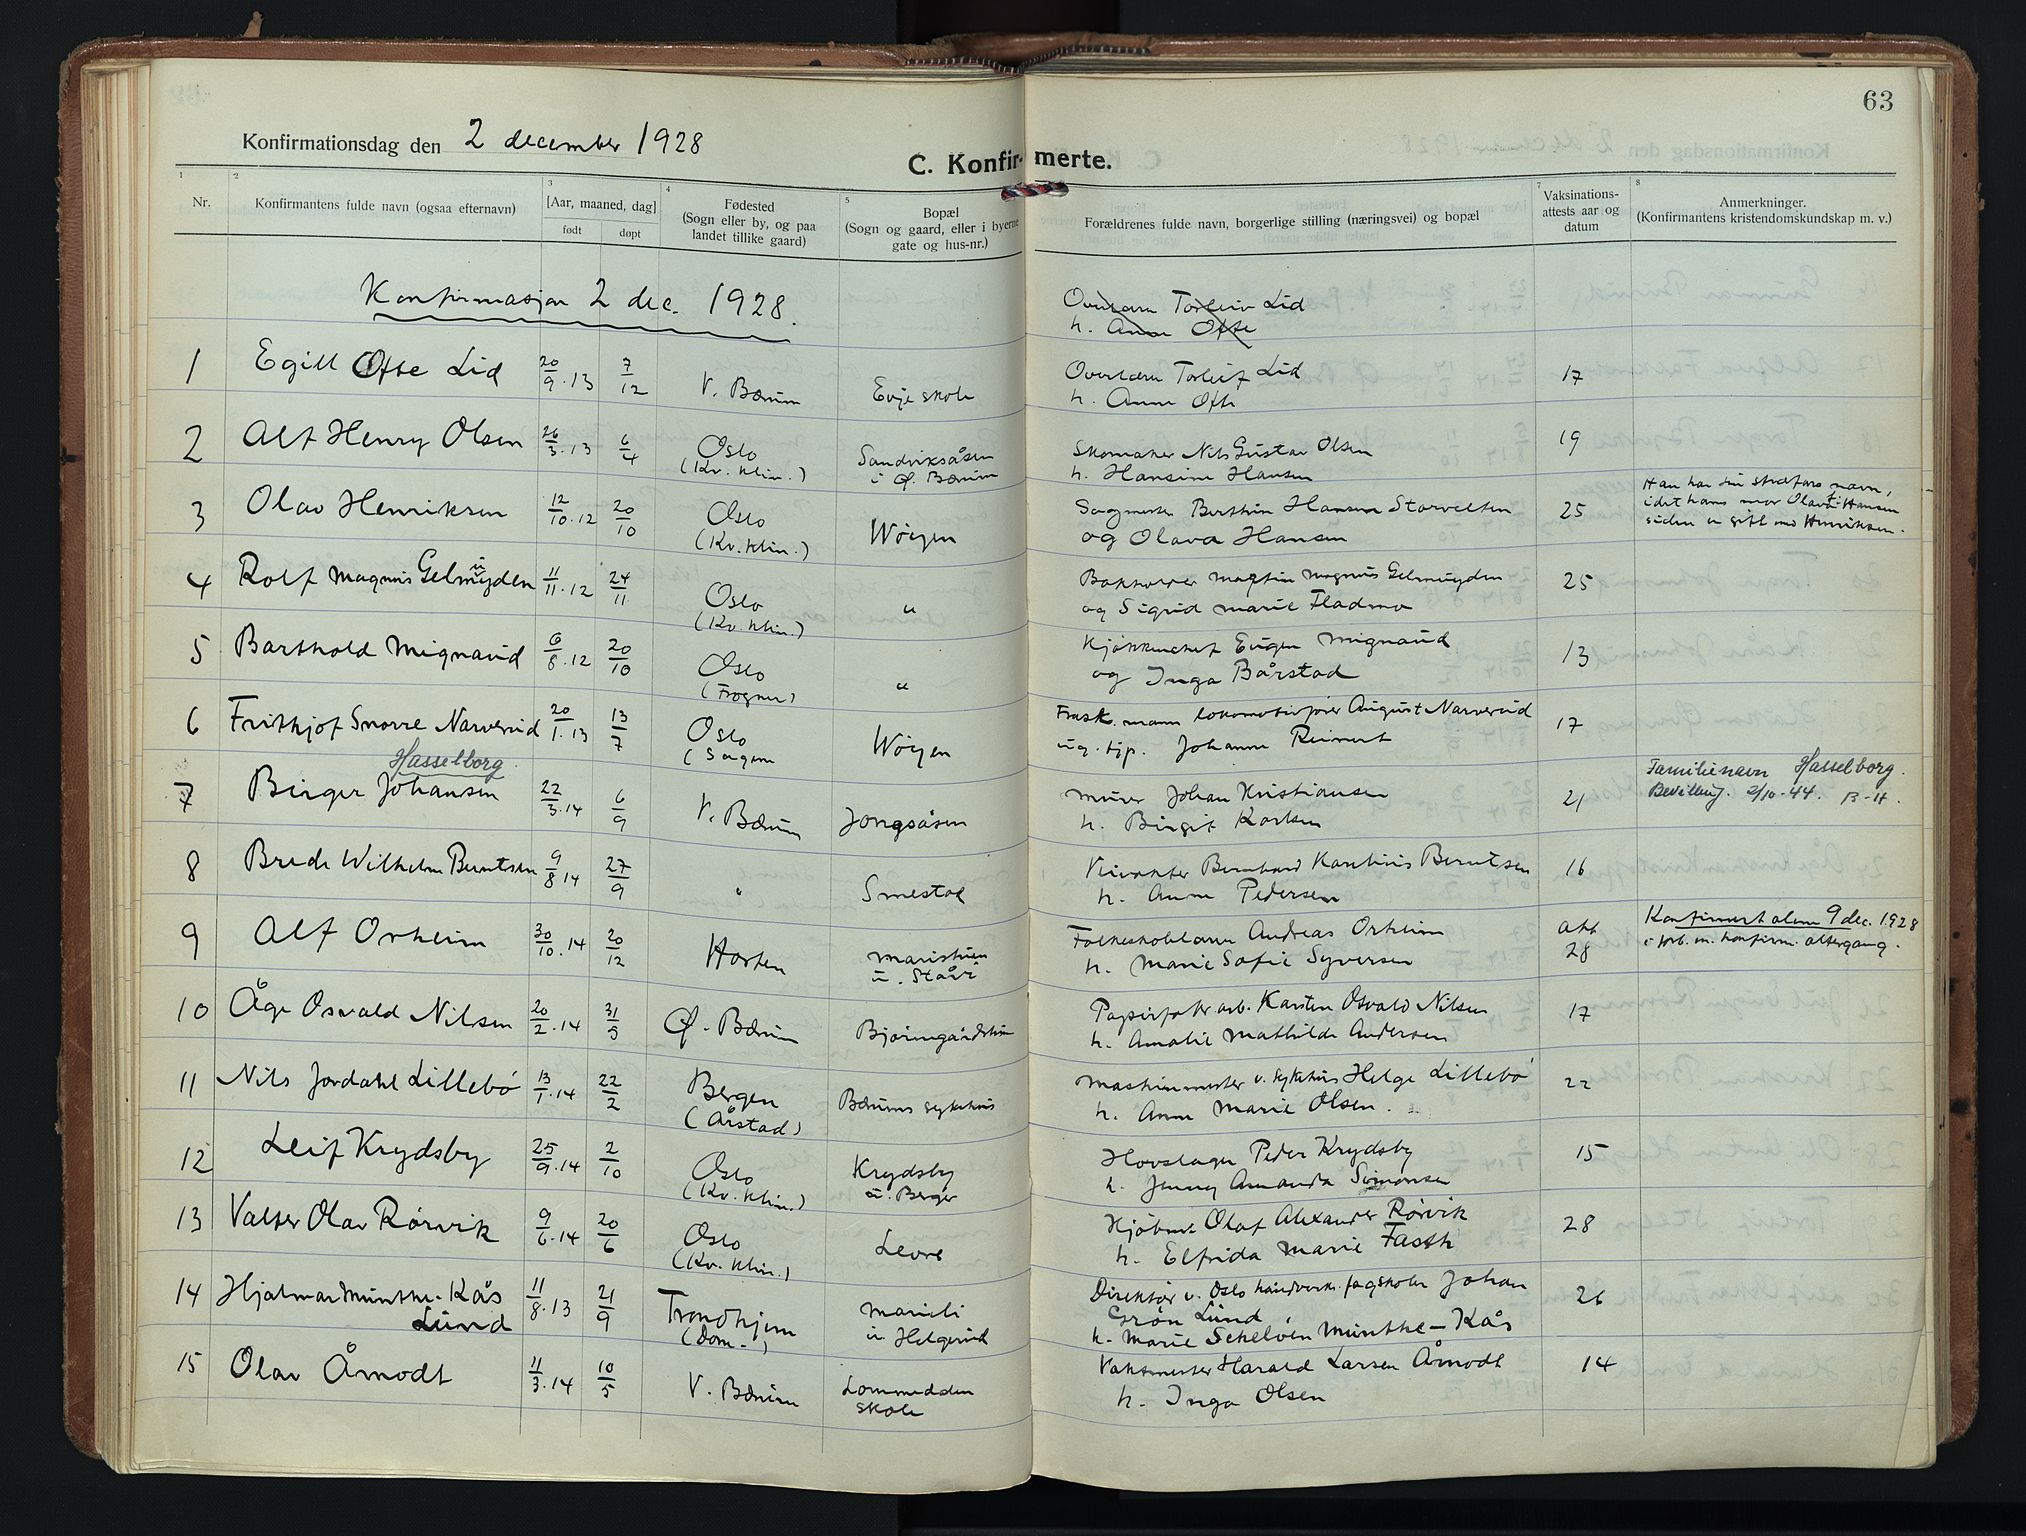 63
Konfirmationsdag den 2 december 1928
C. Konfirmerte.
1 2 3 4 5 7 8
Nr.
Konfirmantens fulde navn (ogsaa efternavn)
[Aar, maaned, dag]
født døpt
Fødested
(Sogn eller by, og paa
landet tillike gaard)
Bopæl
(Sogn og gaard, eller i byerne
gate og hus-nr.)
Forældrenes fulde navn, borgerlige stilling (næringsvei) og bopæl
Vaksinations-
attests aar og
datum
Anmerkninger.
(Konfirmantens kristendomskundskap m. v.)
Konfirmasjon 2 dec. 1928.
Torleiv Lid
h. Anna Ofte
1 Egill Ofte Lid 20/9.13 7/12 V. Bærum Evje skole Overlærer Torleif Lid 17
h. Anna Ofte
2 Alf Henry Olsen 26/3.13 6/4 Oslo Sandviksåsen Skomaker Nils Gustav Olsen 19
(Kv. klin.) i Ø. Bærum h. Hansine Hansen
3 Olav Henriksen 12/10.12 20/10 Oslo Wøyen Sagmester Berthin Hansen Storvelten 25 Han har sin stedfars navn,
(Kv. klin.) og Olava Hansen idet hans mor Olava Hansen
siden er gift med Henriksen.
4 Rolf Magnus Gelmuyden 11/11.12 24/11 Oslo " Martin Magnus Gelmuyden 25
(Kv. klin.) og Sigrid Marie Fladmo
5 Barthold Mignaud 6/8.12 20/10 Oslo " Kjøkkenchef Eugen Mignaud 13
(Frogner) og Inga Bårstad
6 Frithjof Snorre Narverud 20/1.13 13/7 Oslo Wøyen Frask. mann lokomotivfører August Narverud 17
(Sagene Johanne Reinert
Hasselborg
7 Birger Johansen 22/3.14 6/9 V. Bærum Jongsåsen Murer Johan Kristiansen 21 Familienavn Hasselborg.
h. Birgit Karlsen Bevilling. 2/10-44. B-H.
8 Brede Wilhelm Berntsen 9/8 14 27/9 " Smestad Veivokter Bernhard Karelius Berntsen 16
h. Anna Pedersen
9 Alf Orheim 30/10.14 20/12 Horten Folkeskolelærer Andreas Orheim akt 28 Konfirmert alene 9 dec. 1928
h. Marie Sofie Syversen i forb. m. konfirm. altergang.
10 Åge Osvald Nilsen 20/2.14 31/5 Ø. Bærum Papirfabr.arb. Karsten Osvald Nilsen 17
h. Amalie Mathilde Andersen
11 Nils Jordahl Lillebø 13/1.14 22/2 Bergen Bærums sykehus Maskinmester v. sykehus Helge Lillebø 22
(Årstad) h. Anna Marie Olsen.
12 Leif Krydsby 25/9.14 2/10 Oslo Krydsby Hovslager Peder Krydsby 15
(Kv. klin.) u. Berger h. Jenny Amanda Simonsen
13 Valter Olav Rørvik 9/6.14 20/6 Oslo Levre Olaf Alexander Rørvik 28
(Kv. klin.) h. Elfrida Marie Fasth
14 Hjalmar Munthe-Kås 11/8.13 21/9 Trondhjem Marieli Direktør v. Oslo håndverk. fagskoler Johan 26
Lund (Dom.) u. Helgerud Grøn Lund
h. Marie Schelven Munthe-Kås
15 Olav Åmodt 11/3.14 10/5 V. Bærum Lommedalen Vaktmester Harald Larsen Åmodt 14
skole h. Inga Olsen